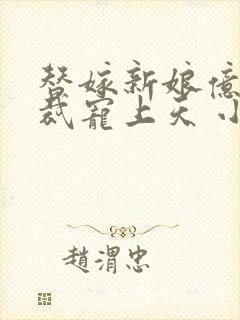 替嫁新娘億
裁寵上天 小
趙渭忠